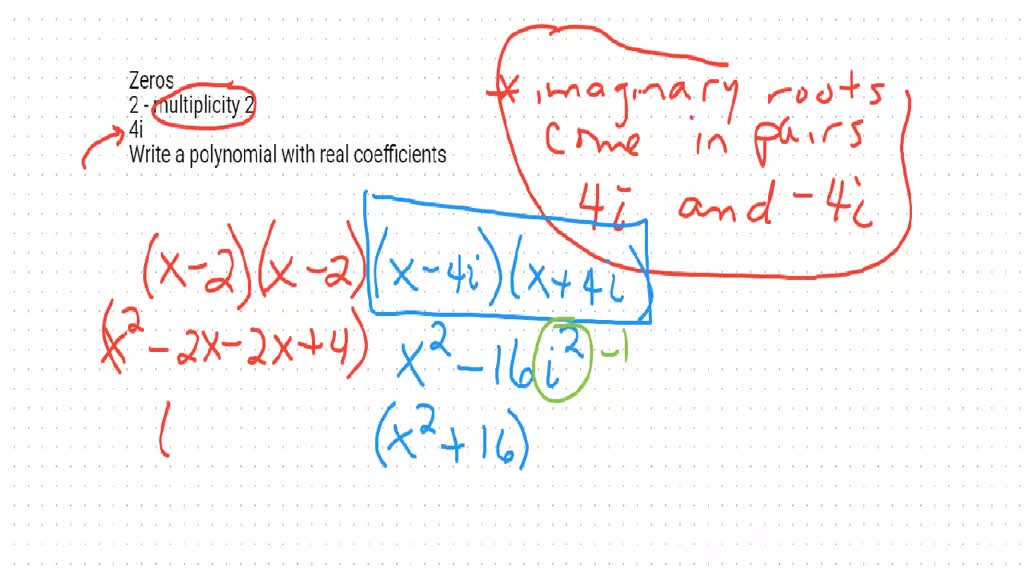 Zeros
2 - multiplicity 2
4i
Write a polynomial with real coefficients
* imaginary roots
come in pairs
4i and -4i
(x-2)(x-2)(x-4i)(x+4i)
(x² -2x-2x+4) x² -16i² -1
( (x²+16)